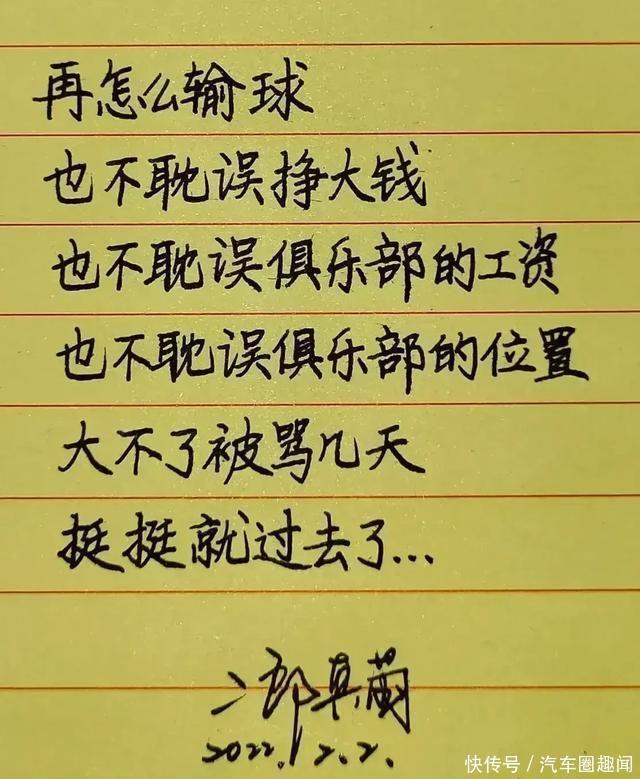 再怎么输球
也不耽误挣大钱
也不耽误俱乐部的工资
也不耽误俱乐部的位置
大不了被骂几天
挺挺就过去了...
二郎真萌
2022.2.2.
快传号/汽车圈趣闻